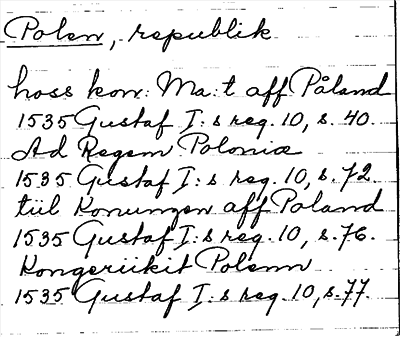 Polen, republik
hoss kon: Ma:t aff Påland
1535 Gustaf I:s reg. 10, s. 40.
Ad Regem Poloniæ
1535 Gustaf I:s reg. 10, s. 72.
tiil Konungen aff Poland
1535 Gustaf I:s reg. 10, s. 76.
Kongeriikit Polenn
1535 Gustaf I:s reg. 10, s. 77.